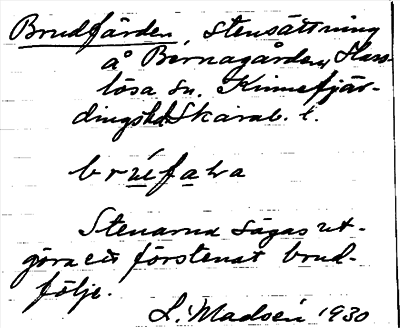 Brudfärden, stensättning
å Bernagården, Hass-
lösa sn. Kinnefjär-
dings hd Skarab. l.
bruefæra
Stenarna sägas ut-
göra ett förstenat brud-
följe.
L. Madsén 1930